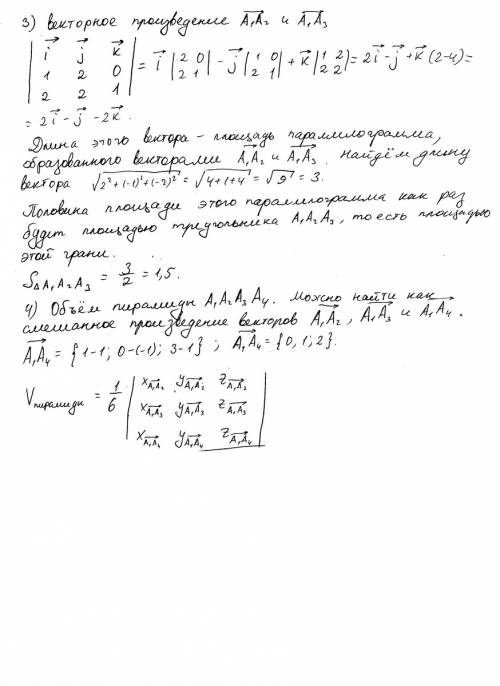 3) векторное произведение A₁A₂ и A₁A₃
| i j k |
| 1 2 0 | = i |2 0; 2 1| - j |1 0; 2 1| + k |1 2; 2 2| = 2i - j + k (2-4) =
| 2 2 1 |
= 2i - j - 2k.
Длина этого вектора - площадь параллилограмма,
образованного векторами A₁A₂ и A₁A₃. Найдём длину
вектора √2²+(-1)²+(-2)² = √4+1+4 = √9 = 3.
Половина площади этого параллилограмма как раз
будет площадью треугольника A₁A₂A₃, то есть площадью
этой грани.
S△A₁A₂A₃ = 3/2 = 1,5.
4) Объём пирамиды A₁A₂A₃A₄. Можно найти как
смешанное произведение векторов A₁A₂, A₁A₃ и A₁A₄.
A₁A₄ = {1-1; 0-(-1); 3-1}; A₁A₄ = {0, 1; 2}.
| x A₁A₂ y A₁A₂ z A₁A₂ |
V пирамиды = 1/6 | x A₁A₃ y A₁A₃ z A₁A₃ |
| x A₁A₄ y A₁A₄ z A₁A₄ |